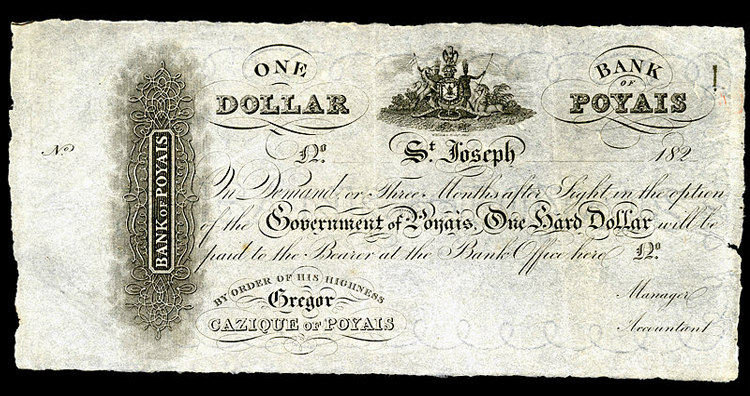 ONE DOLLAR
BANK OF POYAIS
No. St. Joseph 182
No.
On Demand, or Three Months after Sight in the option
of the Government of Poyais, One Hard Dollar will be
paid to the Bearer at the Bank Office here No.
BANK OF POYAIS
BY ORDER OF HIS HIGHNESS
Gregor
CAZIQUE OF POYAIS
Manager
Accountant